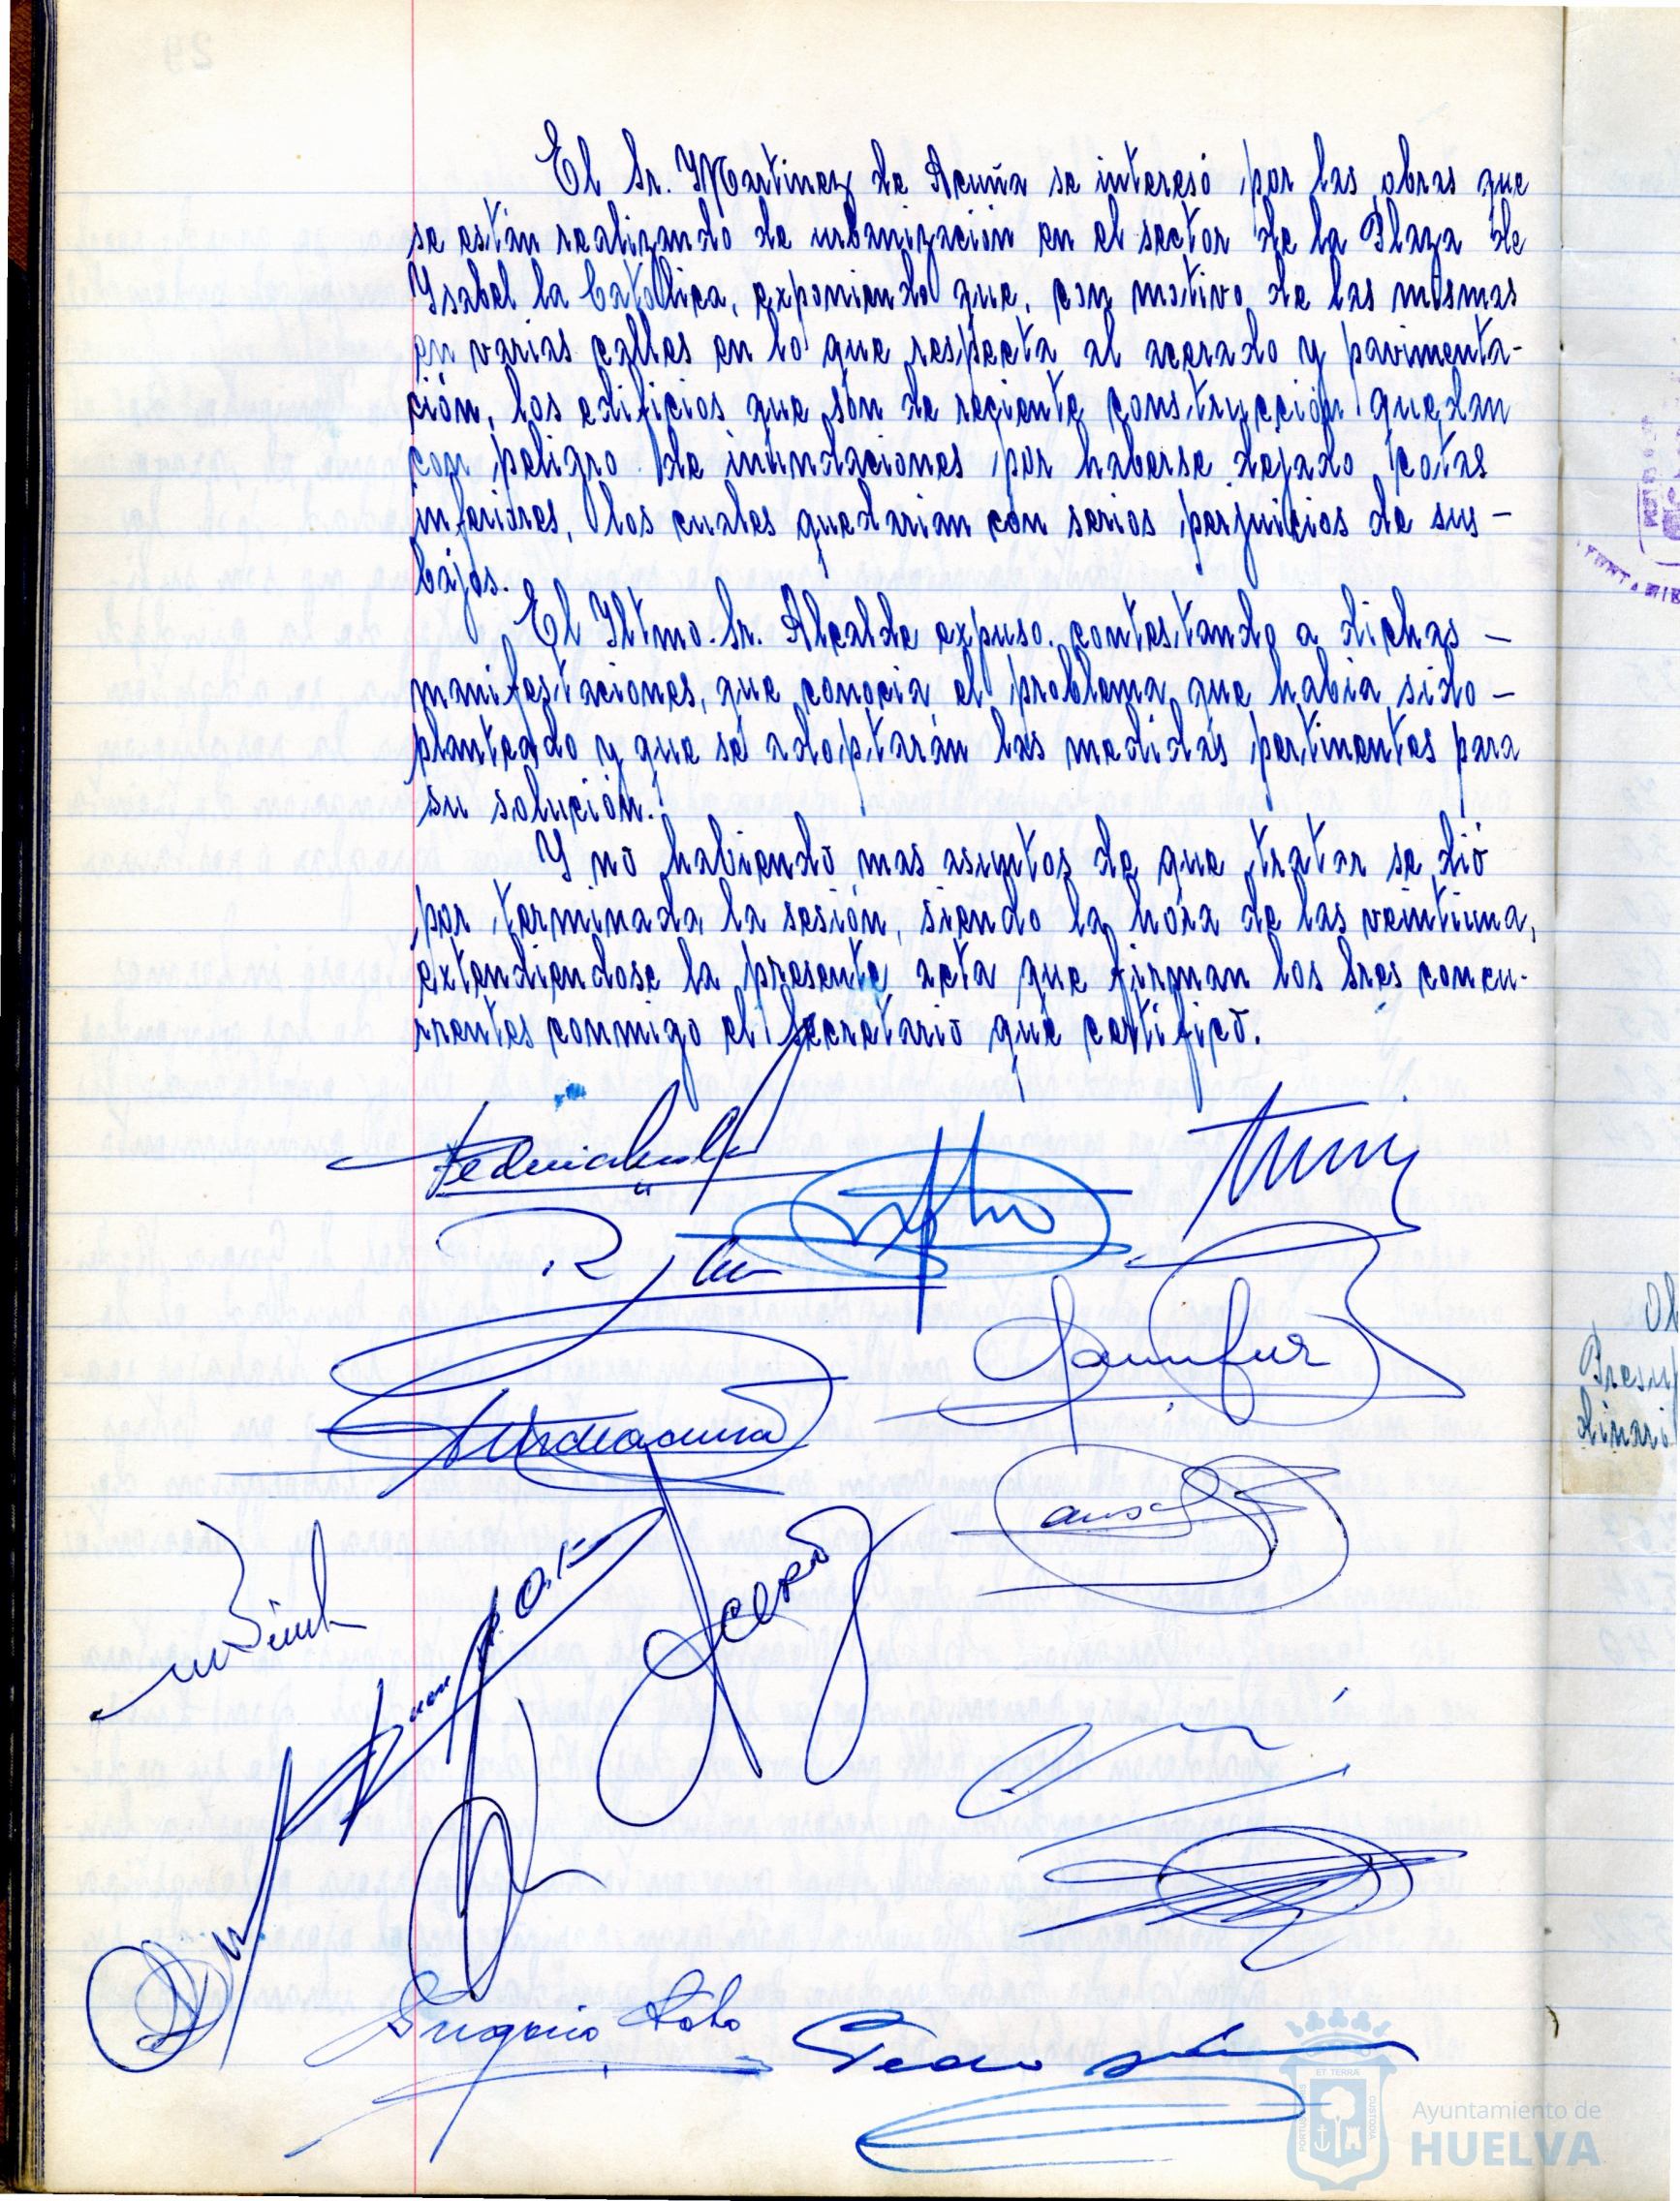 El Sr. Martinez de Acuña se interesó por las obras que
se están realizando de urbanización en el sector de la Plaza de
Ysabel la Católica, exponiendo que, con motivo de las mismas
en varias calles en lo que respecta al acerado y pavimenta-
ción, los edificios que son de reciente construcción quedan
con peligro de inundaciones por haberse dejado cotas
inferiores, los cuales quedarian con serios perjuicios de sus -
bajos.
El Iltmo. Sr. Alcalde expuso, contestando a dichas -
manifestaciones, que conocia el problema que habia sido -
planteado y que se adoptarán las medidas pertinentes para
su solución.
Y no habiendo mas asuntos de que tratar se dió
por terminada la sesión, siendo la hora de las veintiuna,
extendiendose la presente acta que firman los Sres concu-
rrentes conmigo el Secretario que certifico.
Acero
Pedro
Ayuntamiento de
HUELVA